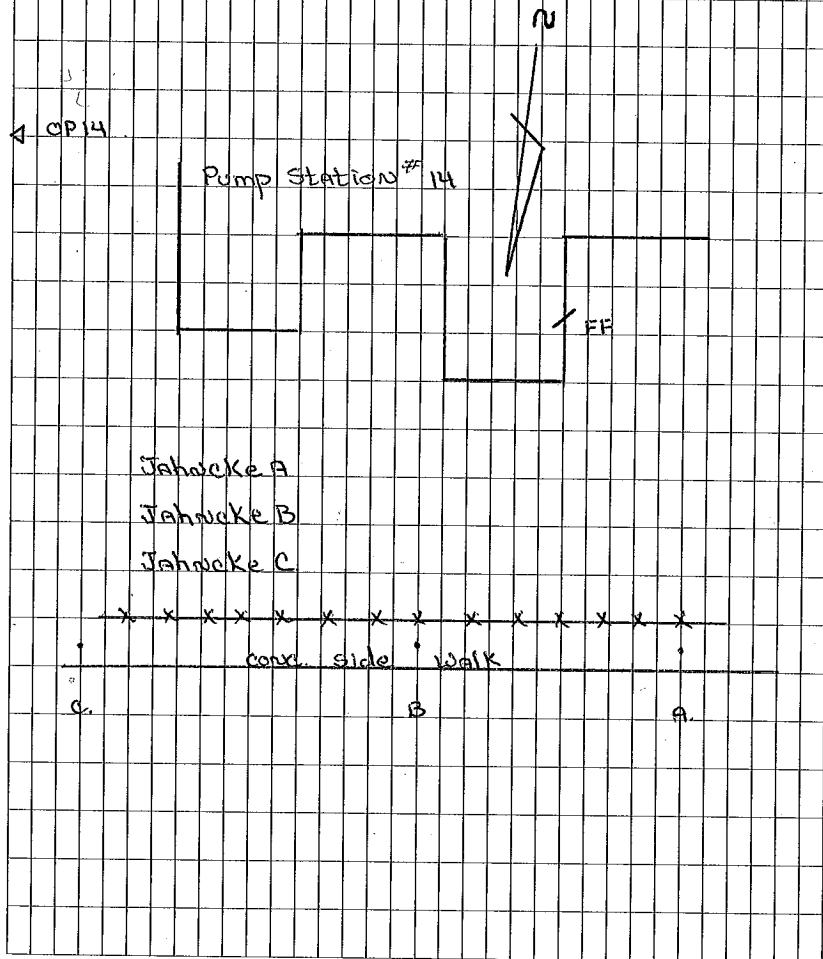 N
OP14
Pump Station # 14
FF
Jahncke A
Jahncke B
Jahncke C
conc. side walk
C. B A.